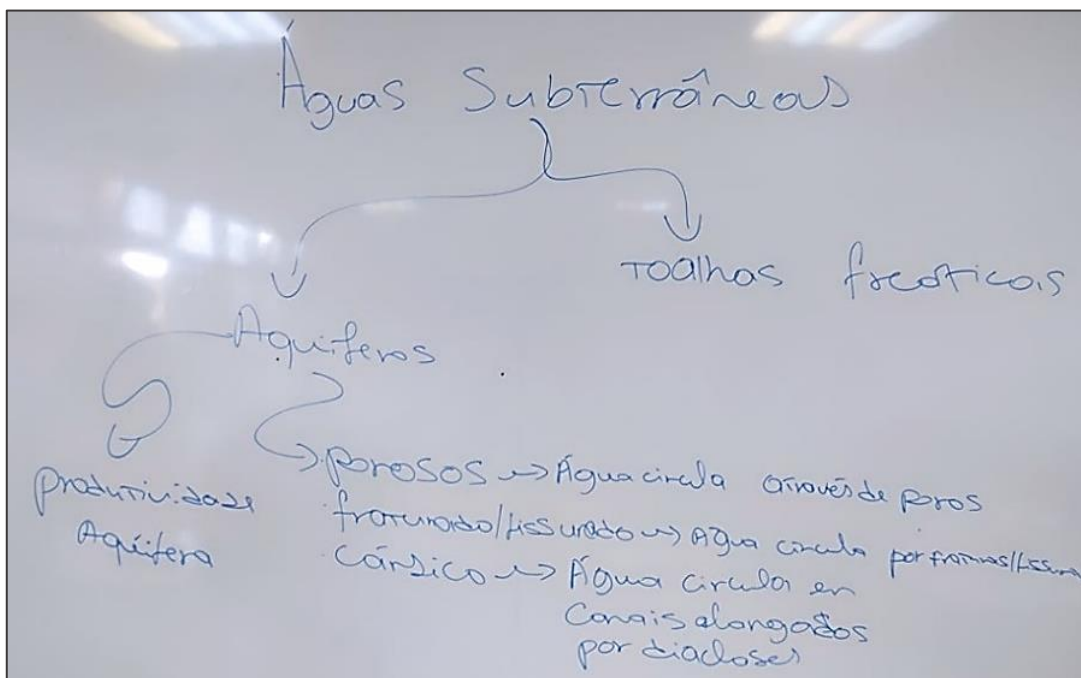 Águas Subterrâneas
Toalhas freáticas
Aquíferos
Produtividade
Aquífera
porosos → Água circula através de poros
fraturado/fissurado → Água circula por fraturas/fissuras
Cársico → Água circula en
Canais alongados
por diacloses